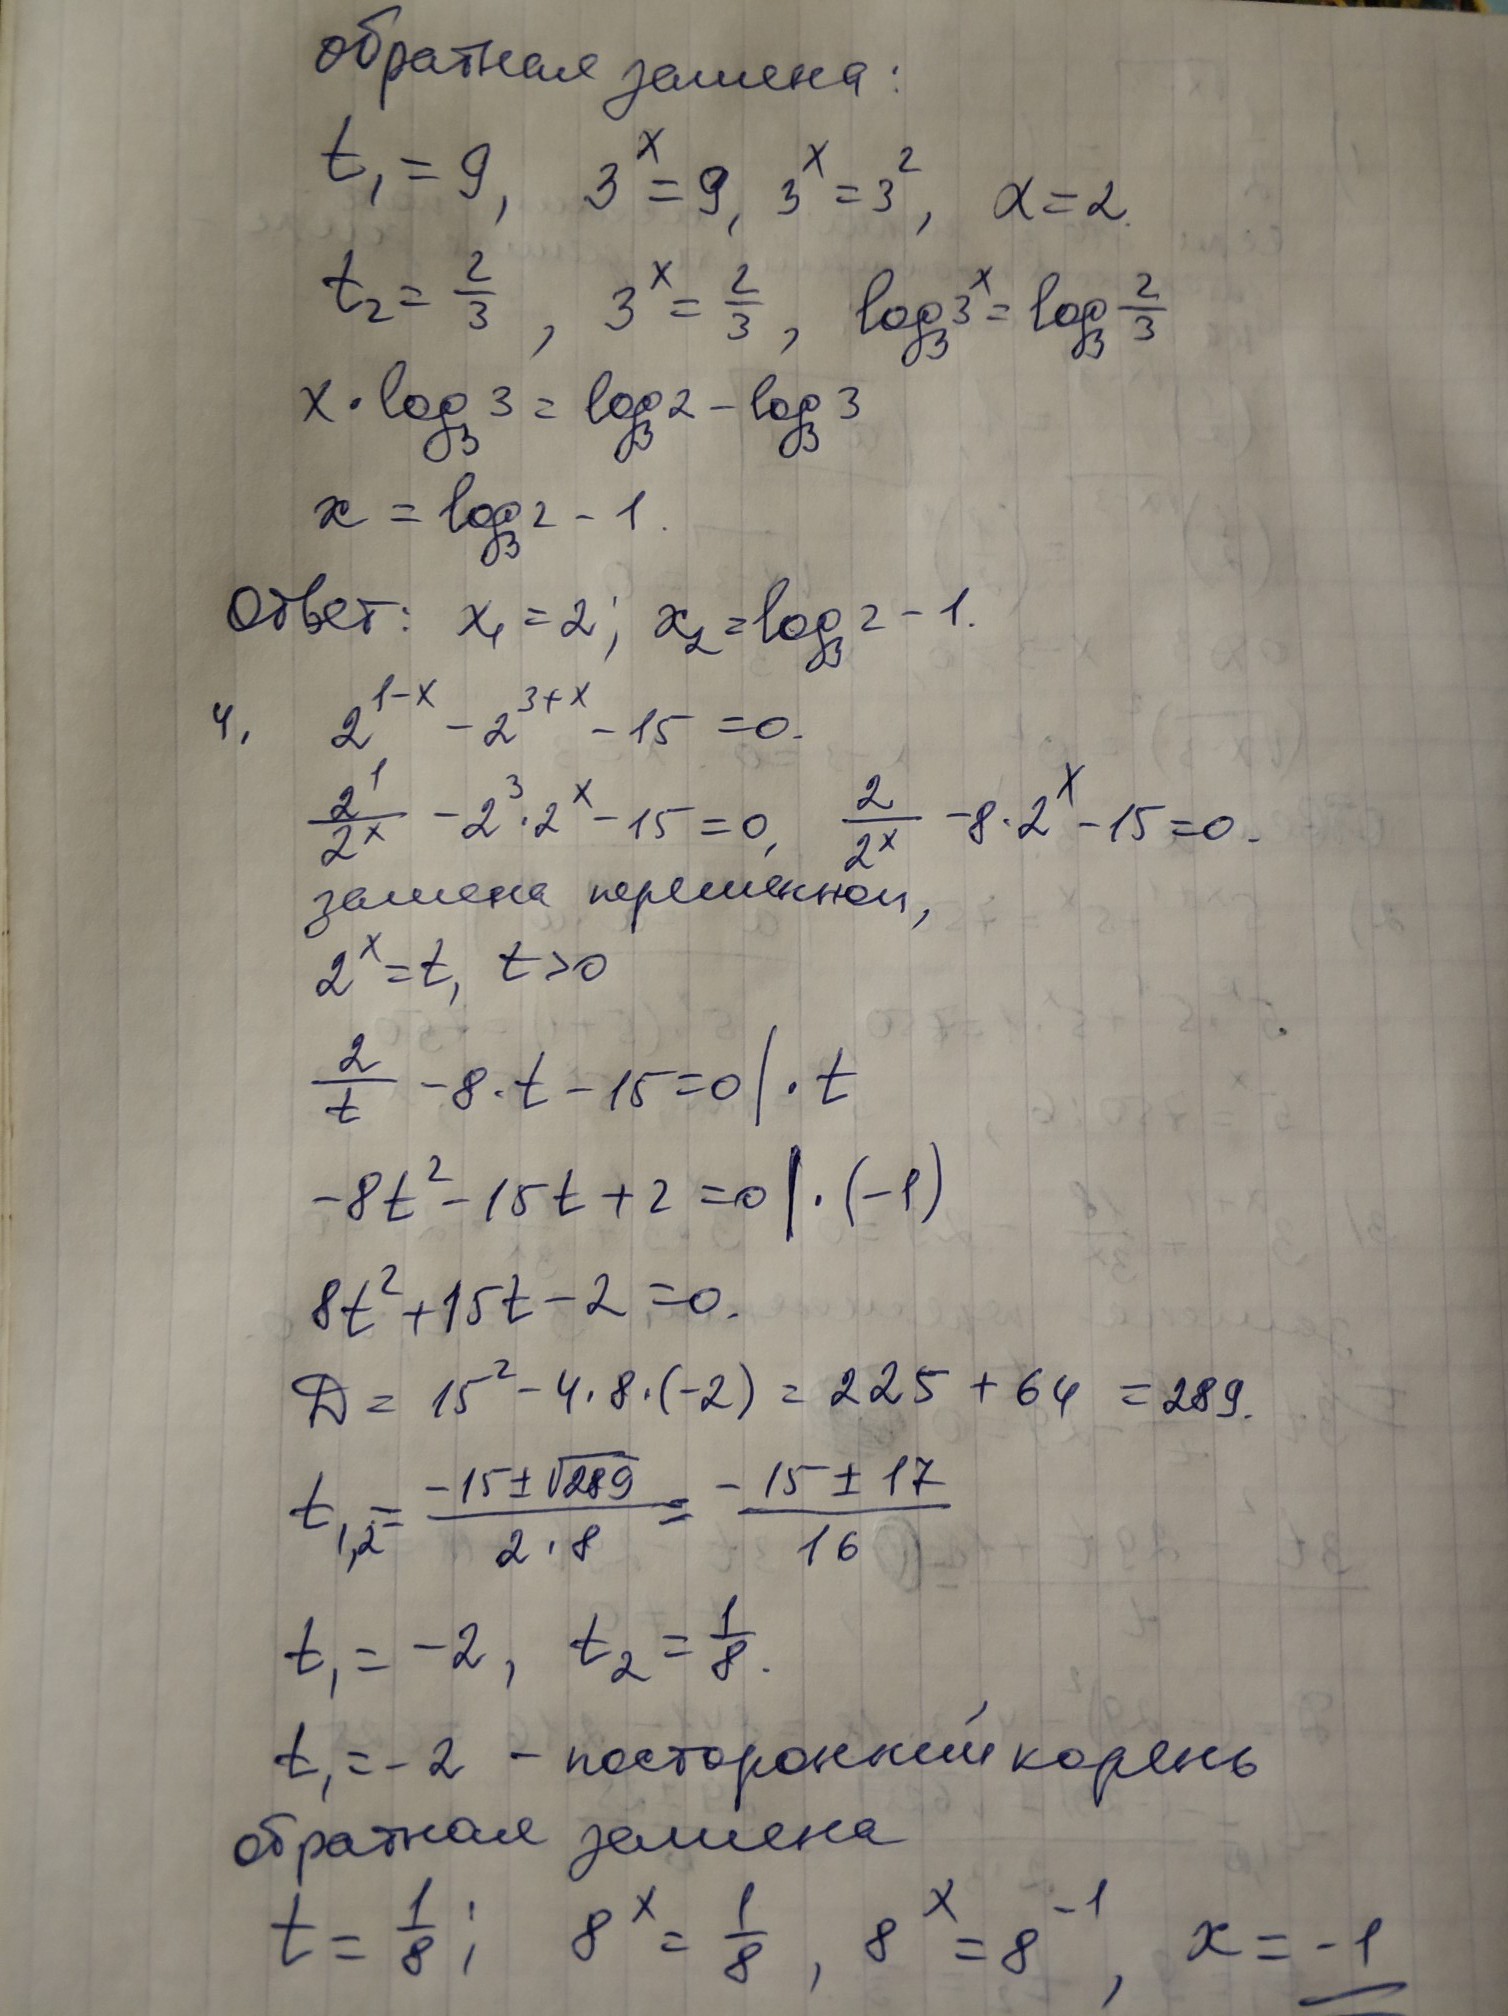 обратная замена:
t₁ = 9, 3ˣ = 9, 3ˣ = 3², x = 2.
t₂ = 2/3, 3ˣ = 2/3, log₃3ˣ = log₃ 2/3
x · log₃3 = log₃2 - log₃3
x = log₃2 - 1.
Ответ: x₁ = 2; x₂ = log₃2 - 1.
4. 2¹⁻ˣ - 2³⁺ˣ - 15 = 0.
2¹/2ˣ - 2³·2ˣ - 15 = 0, 2/2ˣ - 8·2ˣ - 15 = 0.
замена переменной,
2ˣ = t, t > 0
2/t - 8·t - 15 = 0 | · t
-8t² - 15t + 2 = 0 | · (-1)
8t² + 15t - 2 = 0.
D = 15² - 4·8·(-2) = 225 + 64 = 289.
t₁,₂ = (-15 ± √289)/(2·8) = (-15 ± 17)/16
t₁ = -2, t₂ = 1/8.
t₁ = -2 - посторонний корень
обратная замена
t = 1/8; 8ˣ = 1/8, 8ˣ = 8⁻¹, x = -1